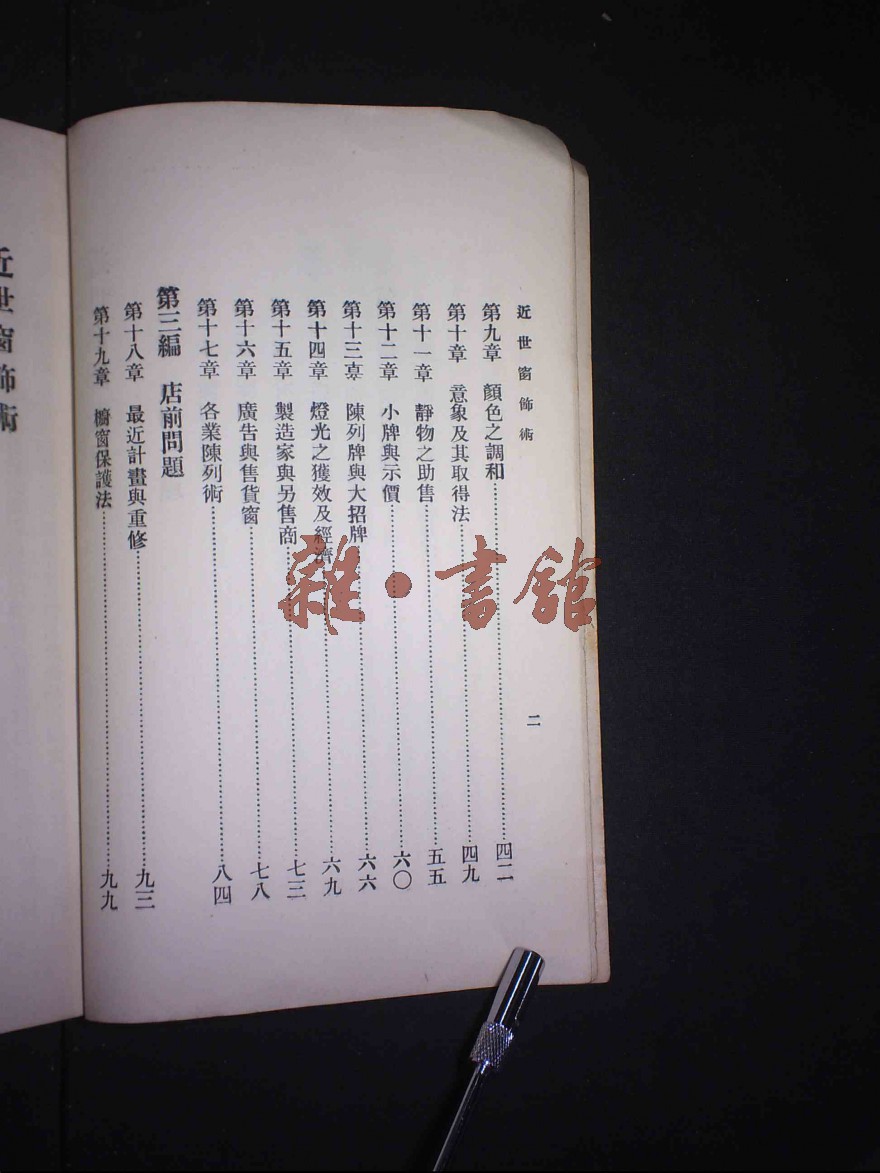 近世窗飾術
二
第九章 顏色之調和……四二
第十章 意象及其取得法……四九
第十一章 靜物之助售……五五
第十二章 小牌與示價……六〇
第十三章 陳列牌與大招牌……六六
第十四章 燈光之獲效及經濟……六九
第十五章 製造家與另售商……七三
第十六章 廣告與售貨窗……七八
第十七章 各業陳列術……八四
第三編 店前問題
第十八章 最近計畫與重修……九三
第十九章 櫥窗保護法……九九
近世窗飾術
雜·書館